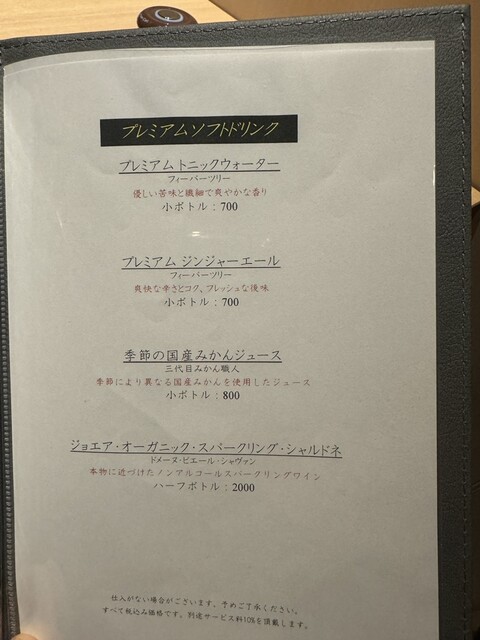 プレミアムソフトドリンク
プレミアム トニックウォーター
フィーバーツリー
優しい苦味と繊細で爽やかな香り
小ボトル：700
プレミアム ジンジャーエール
フィーバーツリー
爽快な辛さとコク、フレッシュな後味
小ボトル：700
季節の国産みかんジュース
三代目みかん職人
季節により異なる国産みかんを使用したジュース
小ボトル：800
ジョエア・オーガニック・スパークリング・シャルドネ
ドメーヌ・ピエール・シャヴァン
本物に近づけたノンアルコールスパークリングワイン
ハーフボトル：2000
仕入がない場合がございます、予めご了承ください。
すべて税込み価格です。別途サービス料10%を頂戴します。